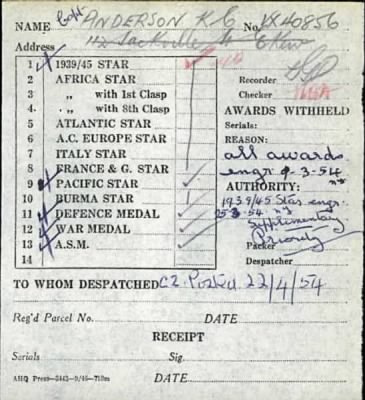 NAME Capt ANDERSON K G No. VX40856
Address 112 Sackville St E Kew
1 1939/45 STAR
2 AFRICA STAR
3 ,, with 1st Clasp
4 ,, with 8th Clasp
5 ATLANTIC STAR
6 A.C. EUROPE STAR
7 ITALY STAR
8 FRANCE & G. STAR
9 PACIFIC STAR
10 BURMA STAR
11 DEFENCE MEDAL
12 WAR MEDAL
13 A.S.M.
14
Recorder
Checker
AWARDS WITHHELD
Serials:
REASON:
all awards
engr 9-3-54
AUTHORITY:
1939/45 Star engr.
54
Supplimentary
Priority
Packer
Despatcher
TO WHOM DESPATCHED C2. Posted 22/4/54
Reg'd Parcel No. DATE
RECEIPT
Serials Sig.
AHQ Press—3443—9/46—710m DATE